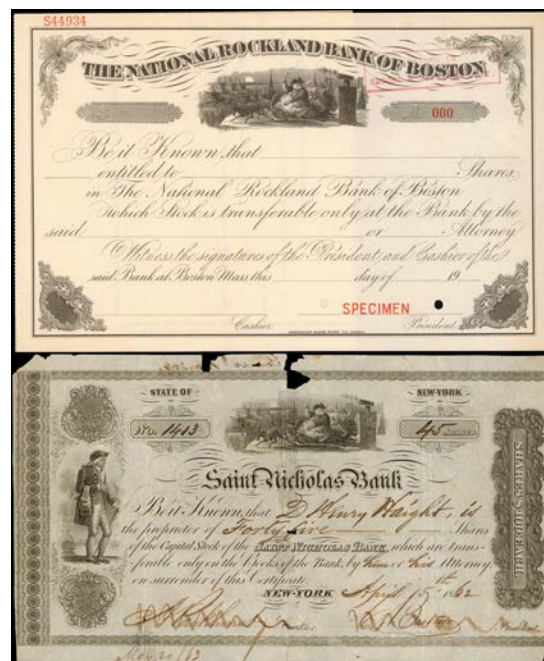 S44934
THE NATIONAL ROCKLAND BANK OF BOSTON
000
Be it Known, that
entitled to Shares,
in The National Rockland Bank of Boston
which Stock is transferable only at the Bank by the
said or Attorney
Witness the signatures of the President and Cashier of the
said Bank at Boston Mass this day of 19
SPECIMEN
Cashier President
STATE OF NEW-YORK
No. 1413 45 SHARES
Saint Nicholas Bank
Be it Known, that D Henry Haight, is
the proprietor of Forty five Shares
of the Capital Stock of the SAINT NICHOLAS BANK, which are trans-
ferable only on the Books of the Bank, by him or his Attorney,
on surrender of this Certificate.
NEW-YORK April 15th 1862
Cashier. President.